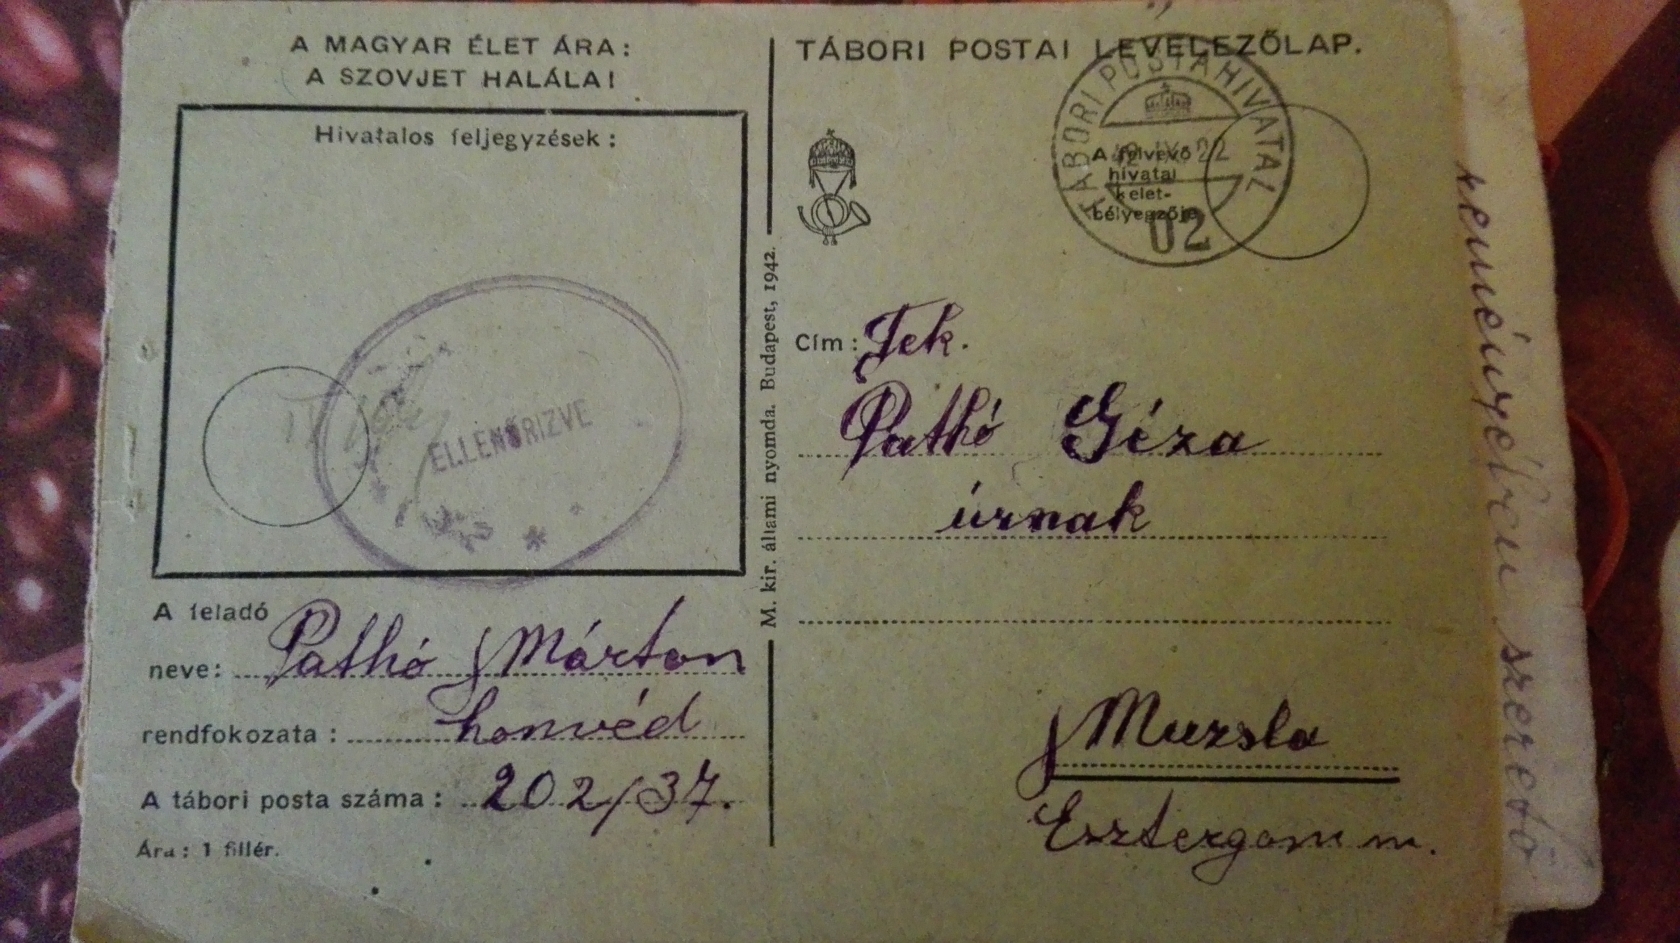 A MAGYAR ÉLET ÁRA:
A SZOVJET HALÁLA!
Hivatalos feljegyzések:
ELLENŐRIZVE
A feladó
neve: Pathó Márton
rendfokozata: honvéd
A tábori posta száma: 202/37.
Ára: 1 fillér.
M. kir. állami nyomda. Budapest, 1942.
TÁBORI POSTAI LEVELEZŐLAP.
TÁBORI POSTAHIVATAL
22
U2
A felvevő
hivatal
kelet-
bélyegzője
Cím: Tek.
Pathó Géza
úrnak
Muzsla
Esztergom m.
szerető